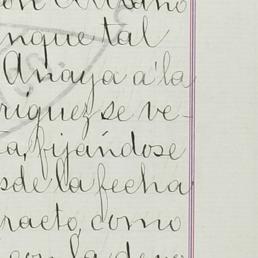 nque tal
Anaya a la
riquez se ve-
a, fijándose
sde la fecha
racto, como